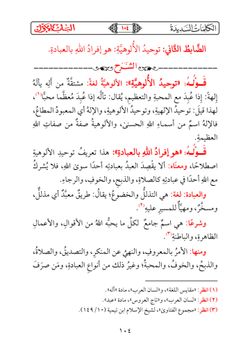 الكلمات السديدة
١٠٤
الضابط الثاني: توحيد الألوهية: هو إفراد الله بالعبادة.
الشرح
قوله: «توحيد الألوهية» الألوهية لغة: مشتقة من أله يأله
إلهة: إذا عُبد مع المحبة والتعظيم، يُقال: تألَّه إذا عَبد مُعظَّما محبا(١)،
لهذا قيل: توحيد الإلهية، وتوحيد الألوهية، والإله أي المعبود المطاع،
فالإله اسم من أسماء الله الحسنى، والألوهية صفة من صفات الله
العظيمة.
قوله: «هو إفراد الله بالعبادة»: هذا تعريف توحيد الألوهية
اصطلاحا، ومعناه: ألا يقصد العبد بعبادته أحدًا سوى الله، فلا يُشرك
مع الله أحدًا في عبادته كالصلاة، والذبح، والخوف، والرجاء.
والعبادة: لغة: هي التذلل والخضوع؛ يقال: طريق معبَّد أي مذلَّل،
ومسخَّر، ومهيَّأ للمسير عليه(٢).
وشرعًا: هي اسم جامع لكل ما يحبه الله من الأقوال، والأعمال
الظاهرة، والباطنة(٣).
ومنها: الأمر بالمعروف، والنهي عن المنكر، والتصديق، والصلاة،
والذبح، والخوف، والمحبة؛ وغير ذلك من أنواع العبادة، ومَن صَرَفَ
(١) انظر: «مقاييس اللغة»، و«لسان العرب»، مادة «أله».
(٢) انظر: «لسان العرب»، و«تاج العروس»، مادة «عبد».
(٣) انظر: «مجموع الفتاوى»، لشيخ الإسلام ابن تيمية (١٠/١٤٩).
١٠٤